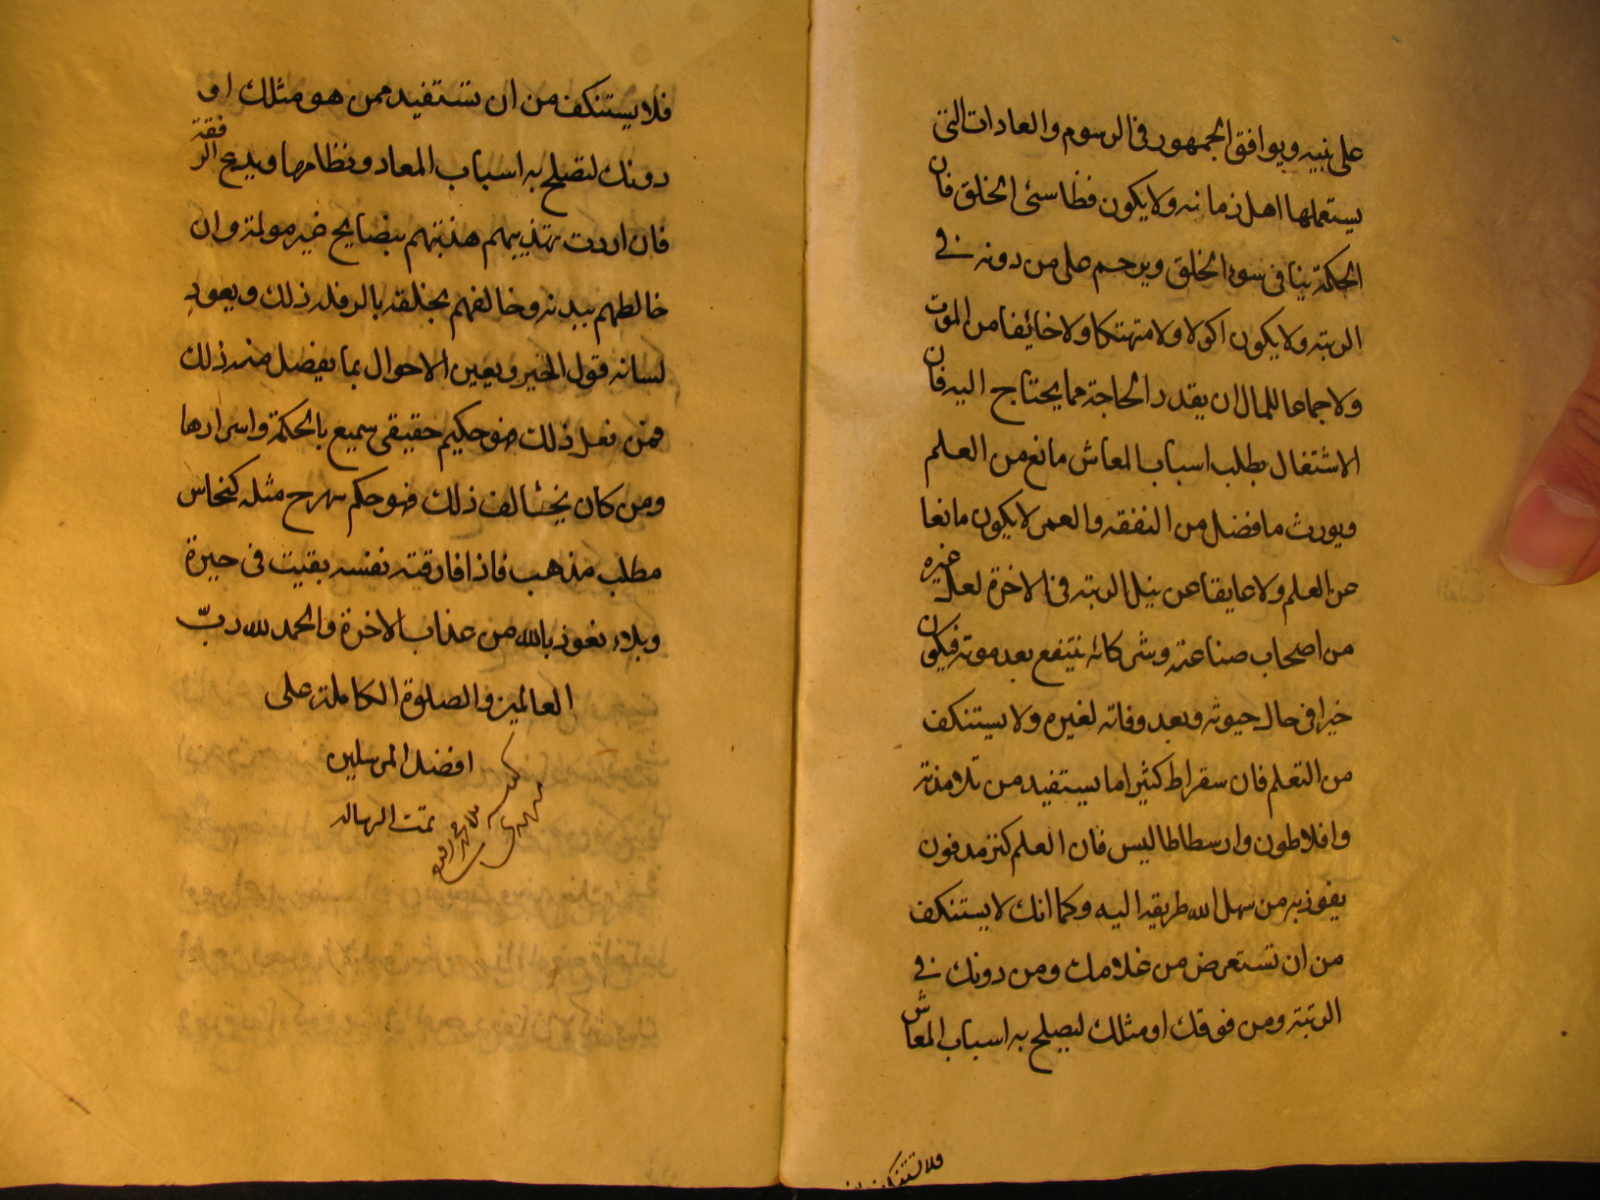 على نبيه ويوافق الجمهور فى الرسوم والعادات التى
يستعملها اهل زمانه ولا يكون فظا سئى الخلق فان
الحكمة ينافى سوء الخلق ويرحم على من دونه فى
الرتبه ولا يكون اكولا ولا متهتكا ولا خائفا من الموت
ولا جماعا للمال ان يقدر الحاجة مما يحتاج اليه فان
الاشتغال بطلب اسباب المعاش مانع من العلم
ويورث ما فضل من النفقه والعمر لا يكون مانعا
عن العلم ولا عايقا عن نيل الرتبه فى الاخرة لعل غيره
من اصحاب صناعته وشركائه ينتفع بعد موته فيكون
خيرا فى حال حيوته وبعد وفاته لغيره ولا يستنكف
من التعلم فان سقراط كثيرا ما يستفيد من تلامذته
وافلاطون وارسطاطاليس فان العلم كنز مدفون
يفوز به من سهل الله طريقه اليه وكما انك لا يستنكف
من ان تستعرض من غلامك ومن دونك فى
الرتبة ومن فوقك او مثلك ليصلح به اسباب المعاش
فلا تستنكف من
فلا يستنكف من ان تستفيد ممن هو مثلك او
دونك لتصلح به اسباب المعاد ونظامها ويدع الر فقة
فان اردت تهذيبهم هذبتهم بنصايح غير مولمة وان
خالطهم ببدنه وخالفهم بخلقه بالر فله ذلك ويعود
لسانه قول الخير ويعين الاحوال بما يفضل منه ذلك
فمن فعل ذلك فهو حكيم حقيقى سميع بالحكمة واسرارها
ومن كان يخالف ذلك فهو حكم بهرج مثله كنحاس
مطلب مذهب فاذا فارقته نفسه بقيت فى حيرة
وبلاء نعوذ بالله من عذاب الاخرة والحمد لله ربّ
العالمين والصلوة الكاملة على
افضل المرسلين
تمت الرساله